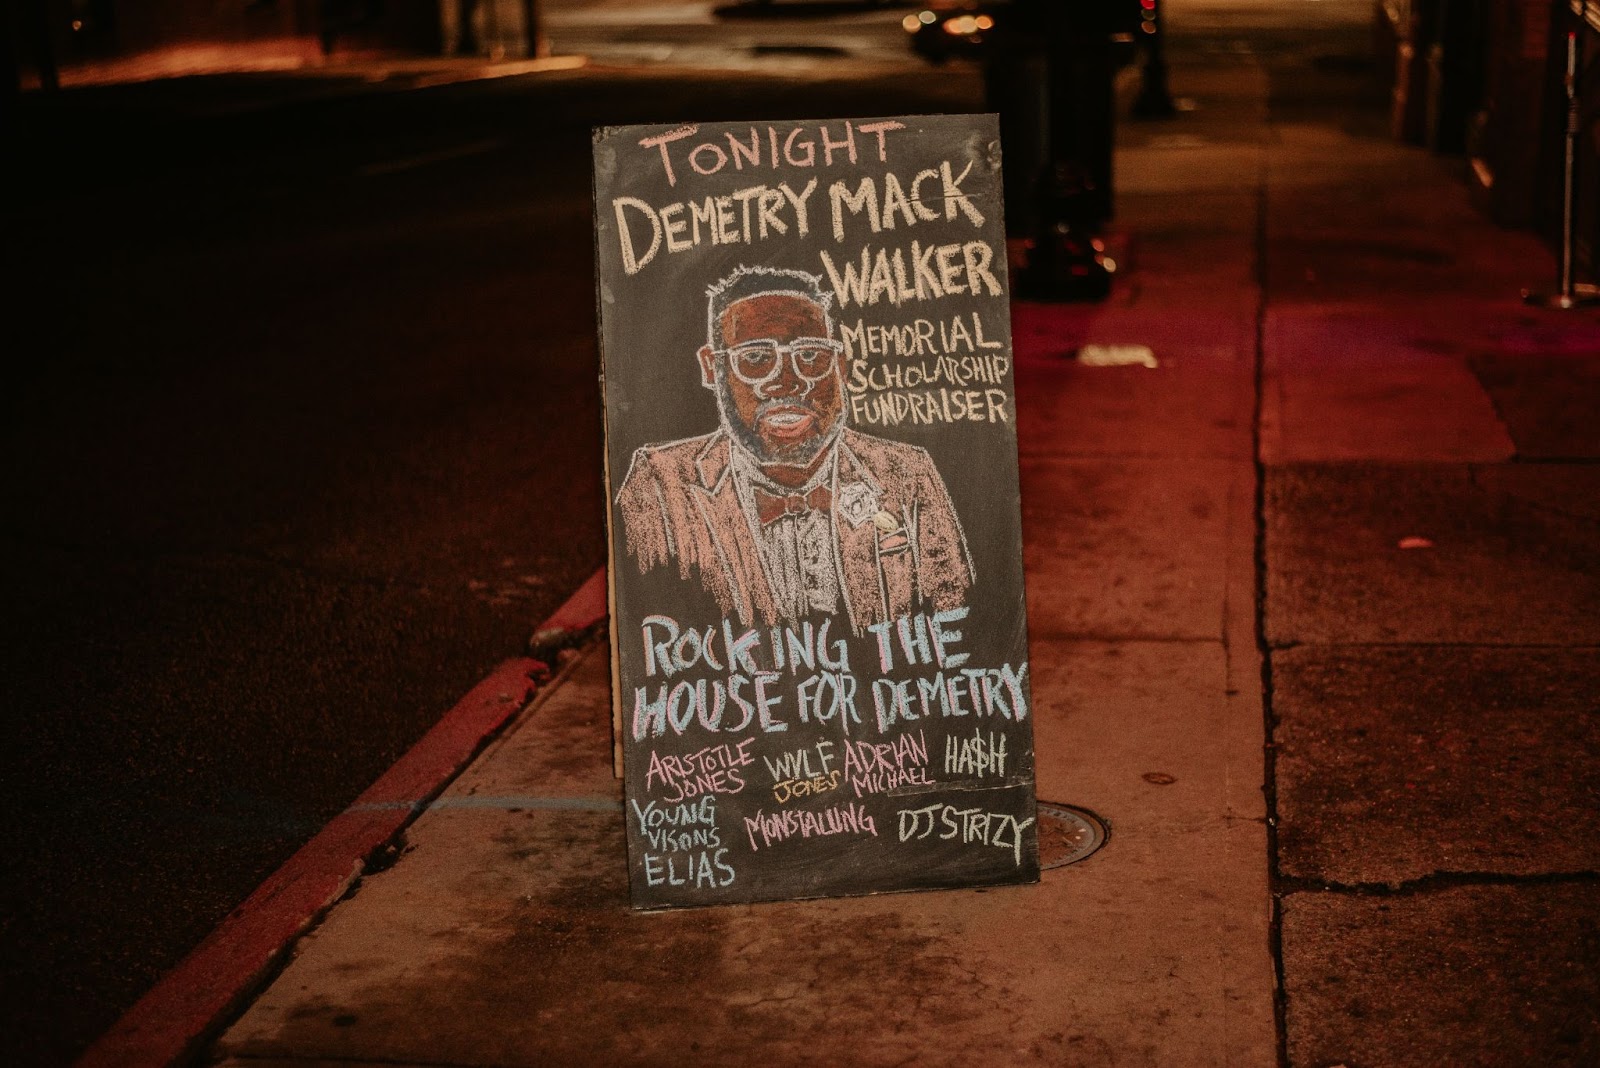 TONIGHT
DEMETRY MACK
WALKER
MEMORIAL
SCHOLARSHIP
FUNDRAISER
ROCKING THE
HOUSE FOR DEMETRY
ARISTOTLE JONES
WVLF JONES
ADRIAN MICHAEL
HA$H
YOUNG VISONS
MONSTALUNG
DJ STRIZY
ELIAS